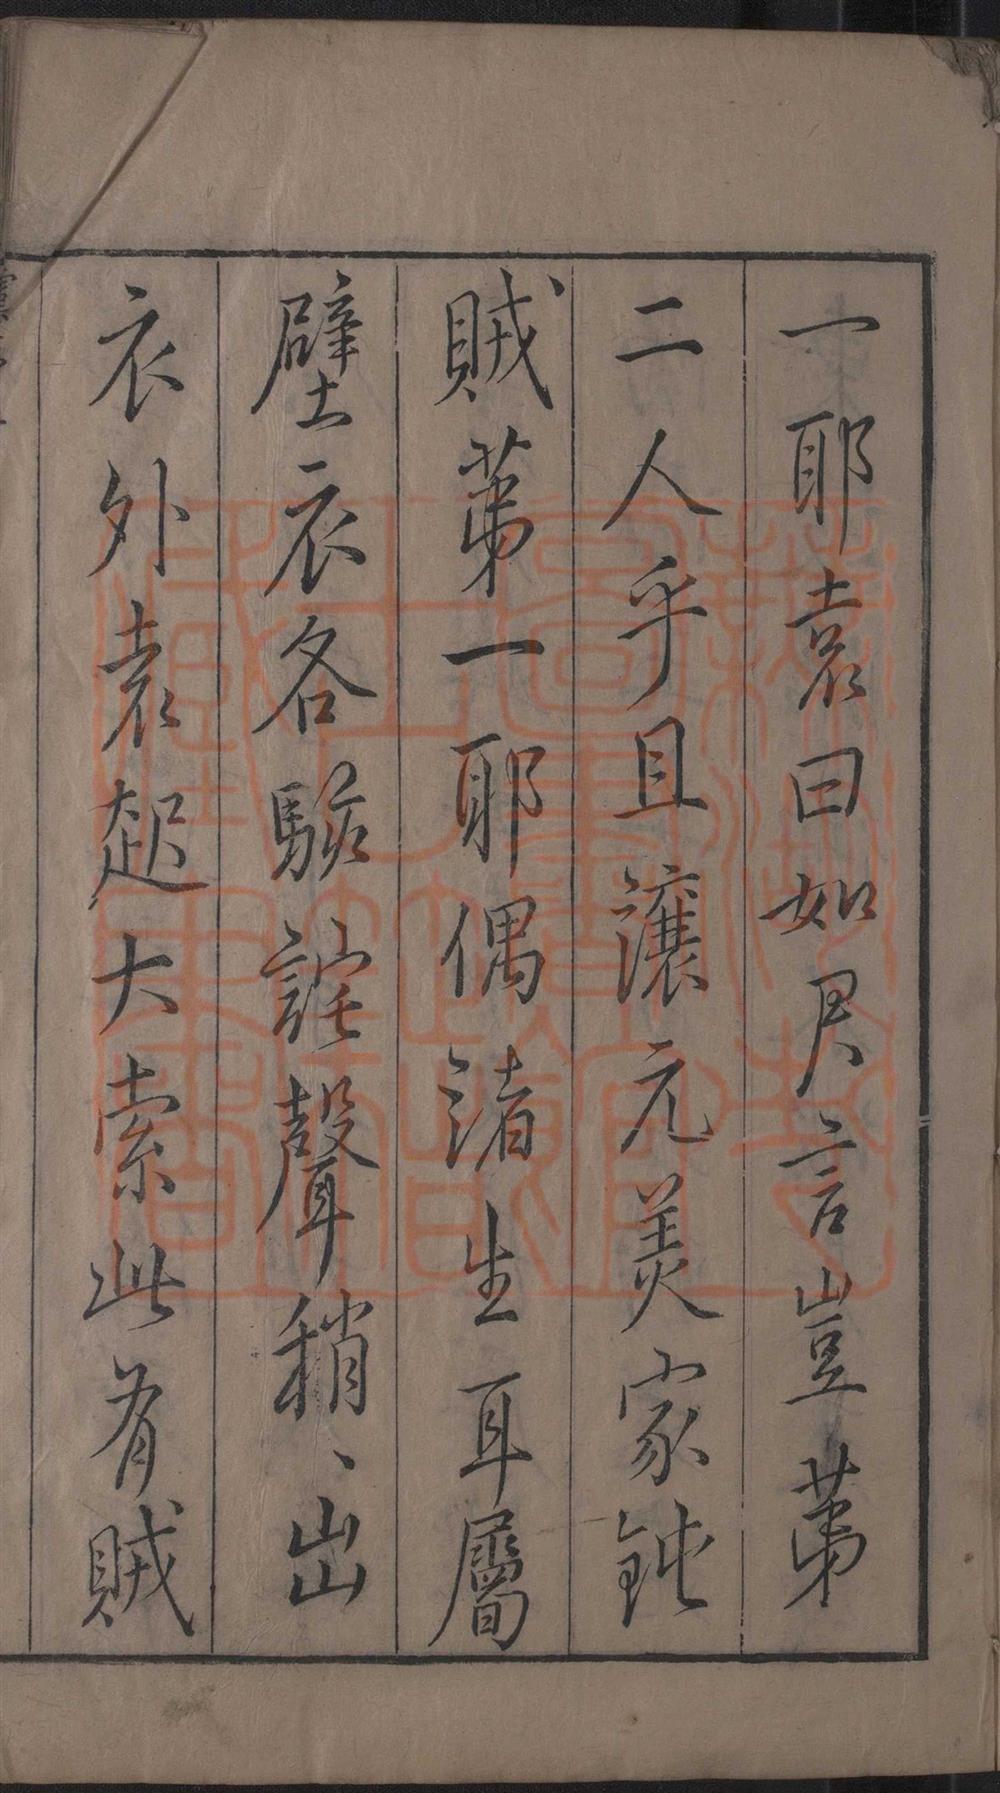 一耶袁曰如君言豈第
二人乎且讓元美家鈍
賊第一耶偶諸生耳屬
壁衣各駭詫聲稍、出
衣外袁起大索此有賊